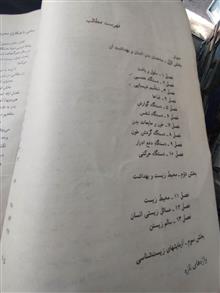 فهرست مطالب
بخش اول - ساختمان بدن انسان و بهداشت آن
فصل ۱ - سلول و بافت
فصل ۲ - دستگاه عصبی
فصل ۳ - تنظیم شیمیایی
فصل ۴ - غذاها
فصل ۵ - دستگاه گوارش
فصل ۶ - دستگاه تنفس
فصل ۷ - خون و مایعات بدن
فصل ۸ - دستگاه گردش خون
فصل ۹ - دستگاه دفع ادرار
فصل ۱۰ - دستگاه حرکتی
بخش دوم - محیط زیست و بهداشت
فصل ۱۱ - محیط زیست
فصل ۱۲ - مسائل زیستی انسان
فصل ۱۳ - سالم زیستن
بخش سوم - آزمایشهای زیست‌شناسی
واژه‌های تازه